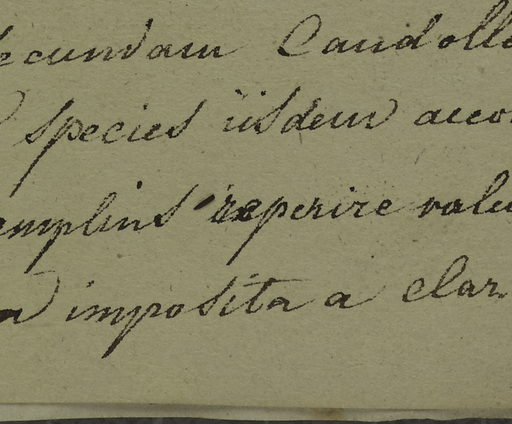 secundam Candolle
species iisdem accom
amplius reperire valu
a imposita a clar